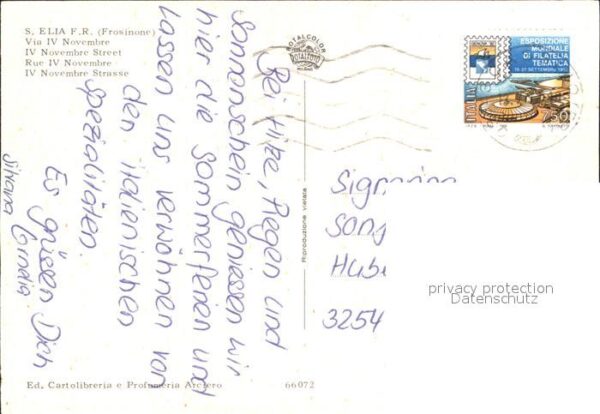 S. ELIA F.R. (Frosinone)
Via IV Novembre
IV Novembre Street
Rue IV Novembre
IV Novembre Strasse
Bei Hitze, Regen und
Sonnenschein geniessen wir
hier die Sommerferien und
lassen uns verwöhnen von
den italienischen
Spezialitäten.
Es grüssen Dich
Silvana
ROTALCOLOR
ROTALFOTO
ESPOSIZIONE
MONDIALE
DI FILATELIA
TEMATICA
ITALIA
50
Riproduzione vietata
Sigm
Song
Hube
3254
privacy protection
Datenschutz
Ed. Cartolibreria e Profumeria Arciero
66072